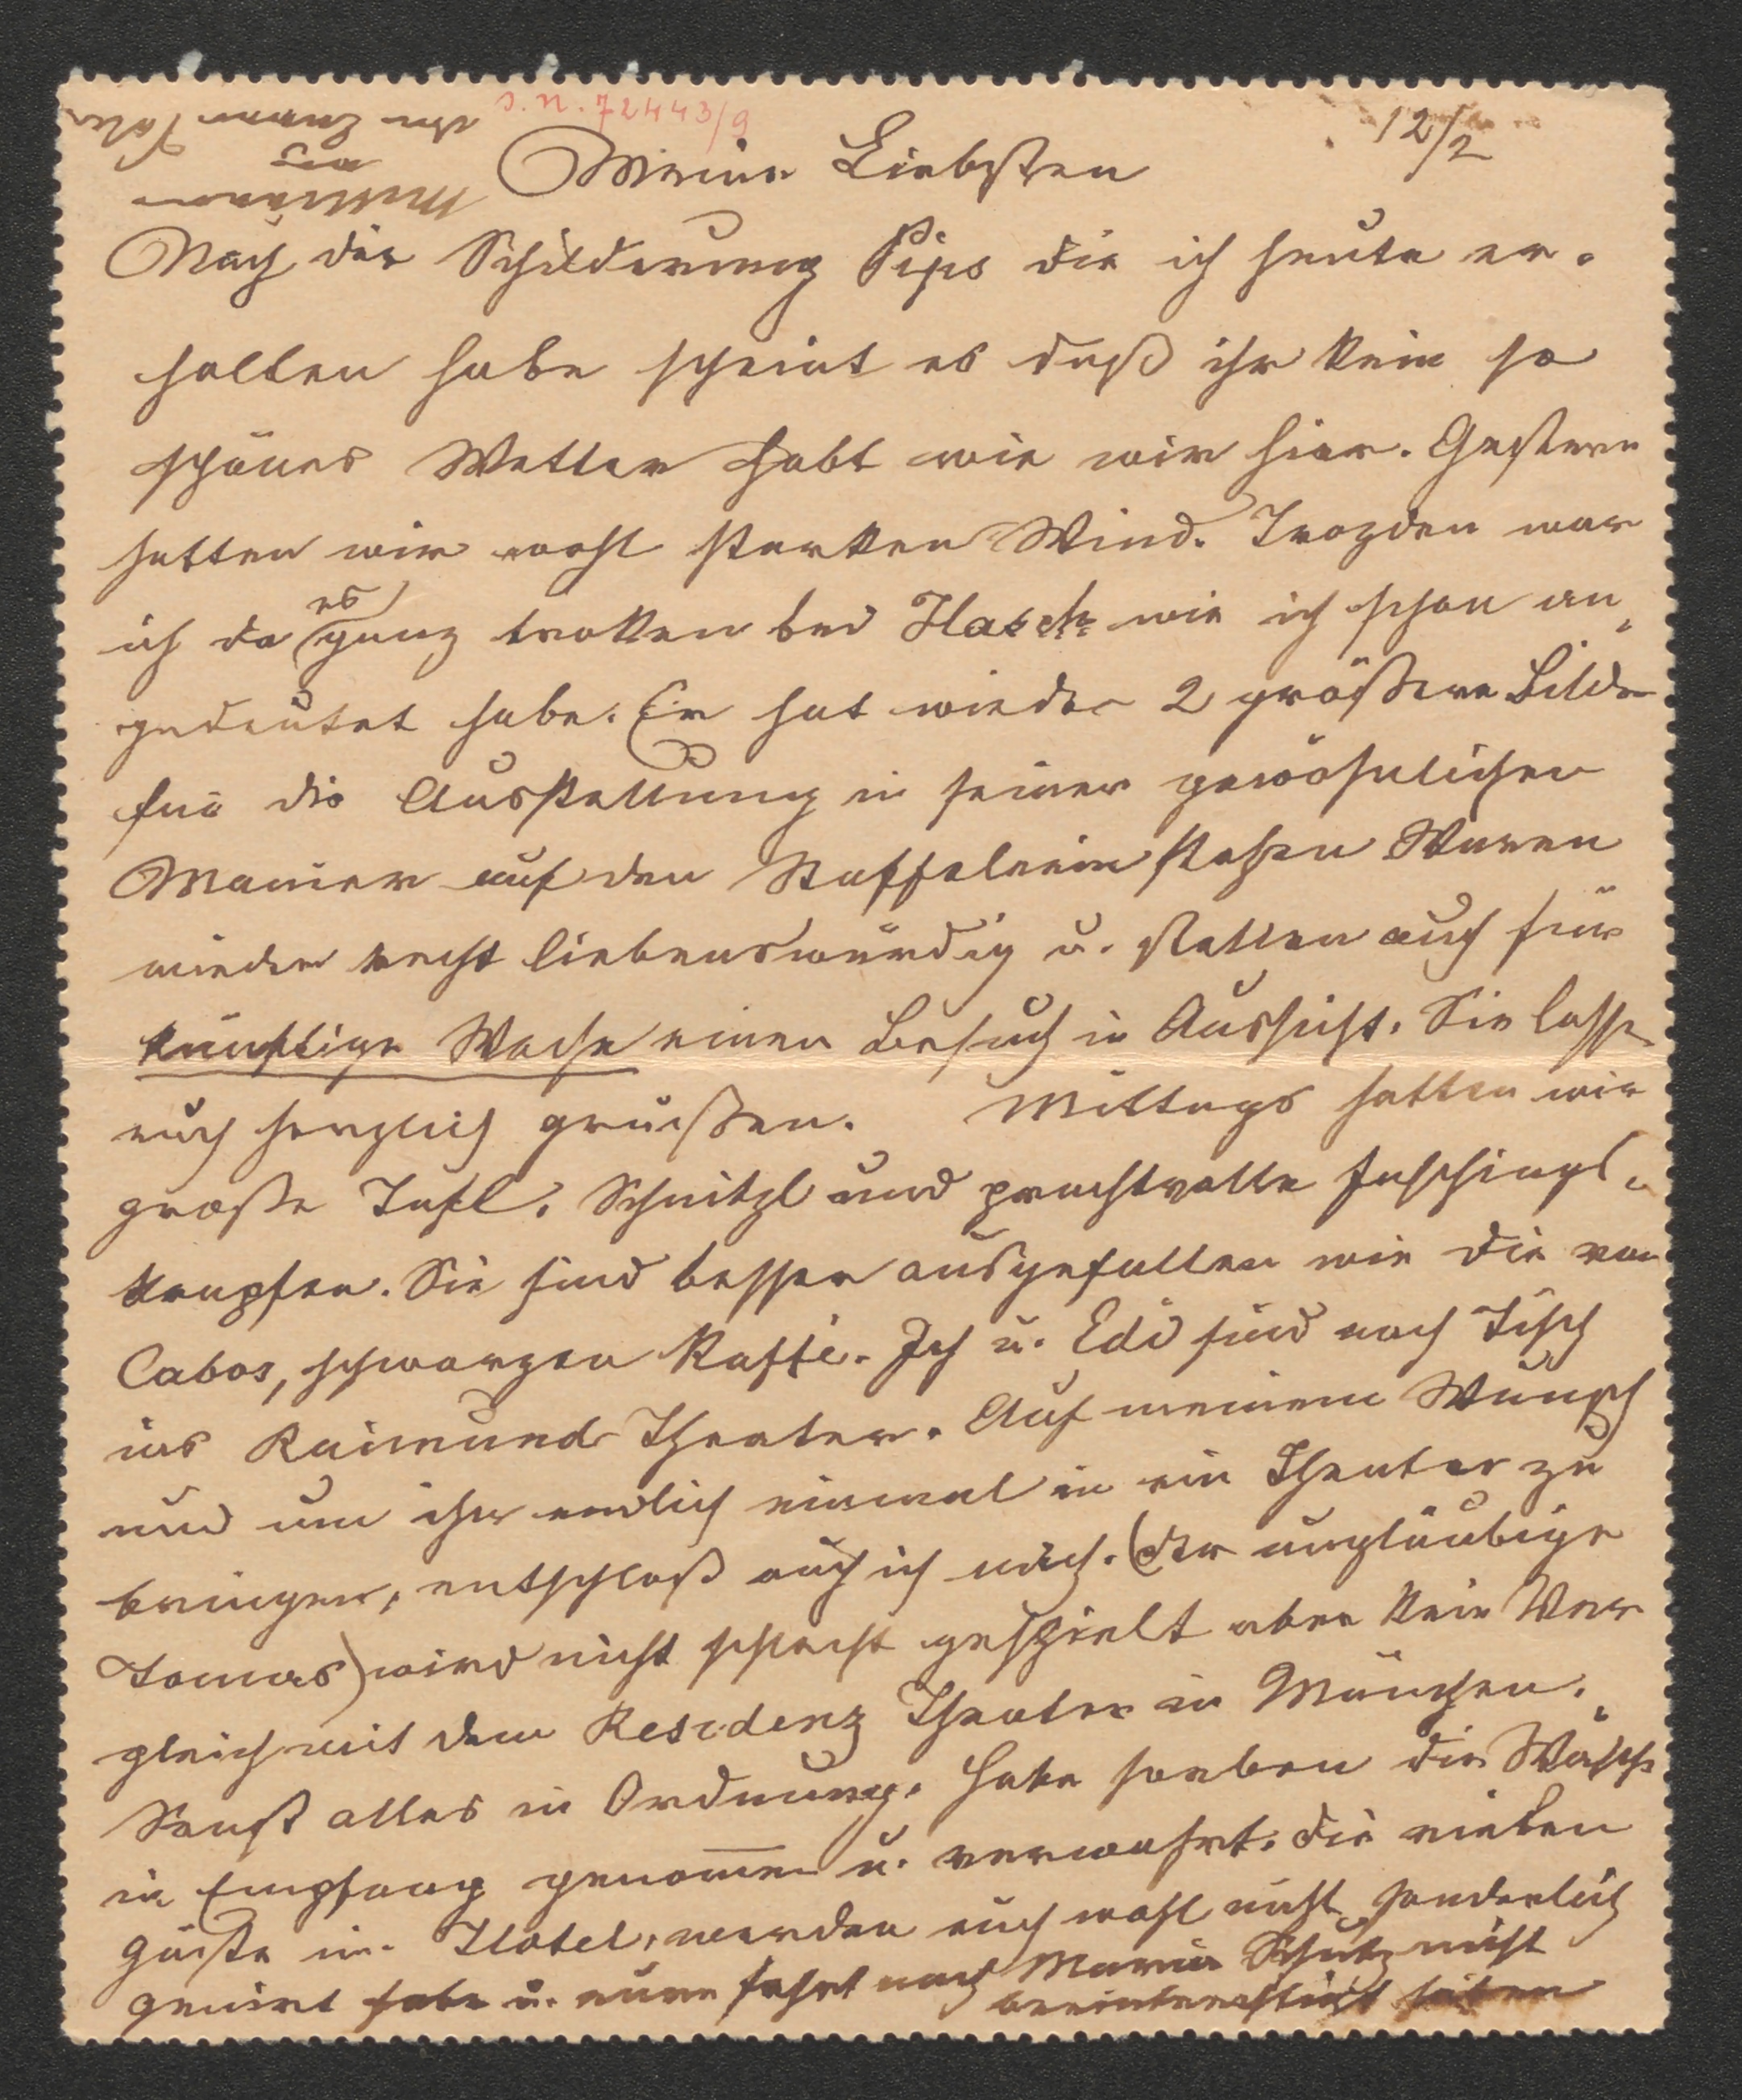 J. N. 72443/9
12/2
Meine Liebsten
Nach der Schilderung Pips die ich heute er-
halten habe scheint es daß ihr kein so
schönes Wetter habt wie wir hier. Gestern
hatten wir wohl starken Wind. Trozden war
ich da es ganz trokken bei Hasch wie ich schon an-
gedeutet habe. Er hat wieder 2 größere Bilder
für die Ausstellung in seiner gewöhnlichen
Manier auf den Staffeleien stehen Waren
wieder recht liebenswürdig u. stellen auch für
künftige Woche einen Besuch in Aussicht. Sie lassen
euch herzlich grüßen. Mittags hatten wir
große Tafl. Schnitzl und prachtvolle Faschings-
krapfen. Sie sind besser ausgefallen wie die von
Cabos, schwarzen Kaffe. Ich u. Edi sind nach Tisch
ins Raimund Theater. Auf meinem Wunsch
und um ihn endlich einmal in ein Theater zu
bringen, entschloß auch ich mich. (Der ungläubige
Tomas) wird nicht schlecht gespielt aber kein Ver
gleich mit dem Residenz Theater in München.
Sonst alles in Ordnung. Habe soeben die Wäsche
in Empfang genommen u. verwahrt. Die vielen
Gäste im Hotel, werden euch wohl nicht sonderlich
genirt habe u. eure Fahrt nach Maria Schutz nicht
beeinträchtigt haben